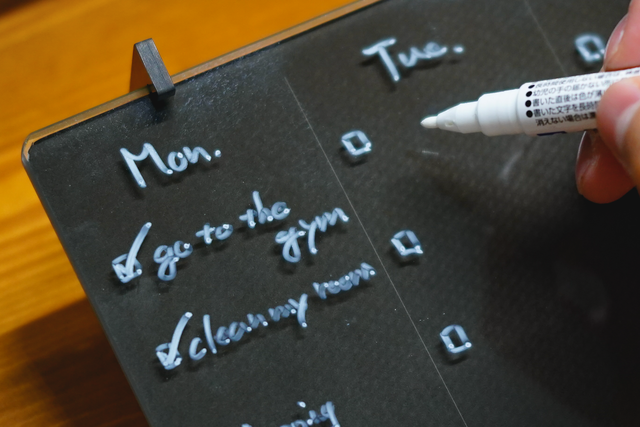 Mon.
☑ go to the
gym
☑ clean my room
Tue.
☐
☐
☐
☐
●書いた直後は色が薄
●書いた文字を長時
消えない場合は